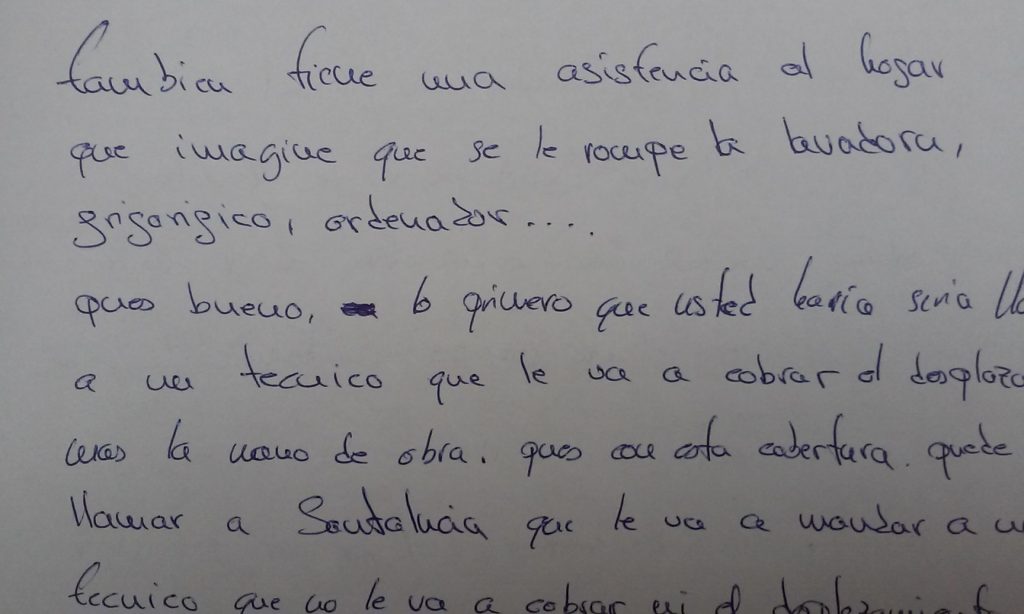 tambien tiene una asistencia al hogar
que imagine que se le rocupe la lavadora,
grigorigico, ordenador....
pues bueno, lo primero que usted haria seria ll
a un tecnico que le va a cobrar el desplaza
mas la mano de obra. pues con esta cobertura. puede
llamar a Santalucia que le va a mandar a u
tecnico que no le va a cobrar ni el desplazamient